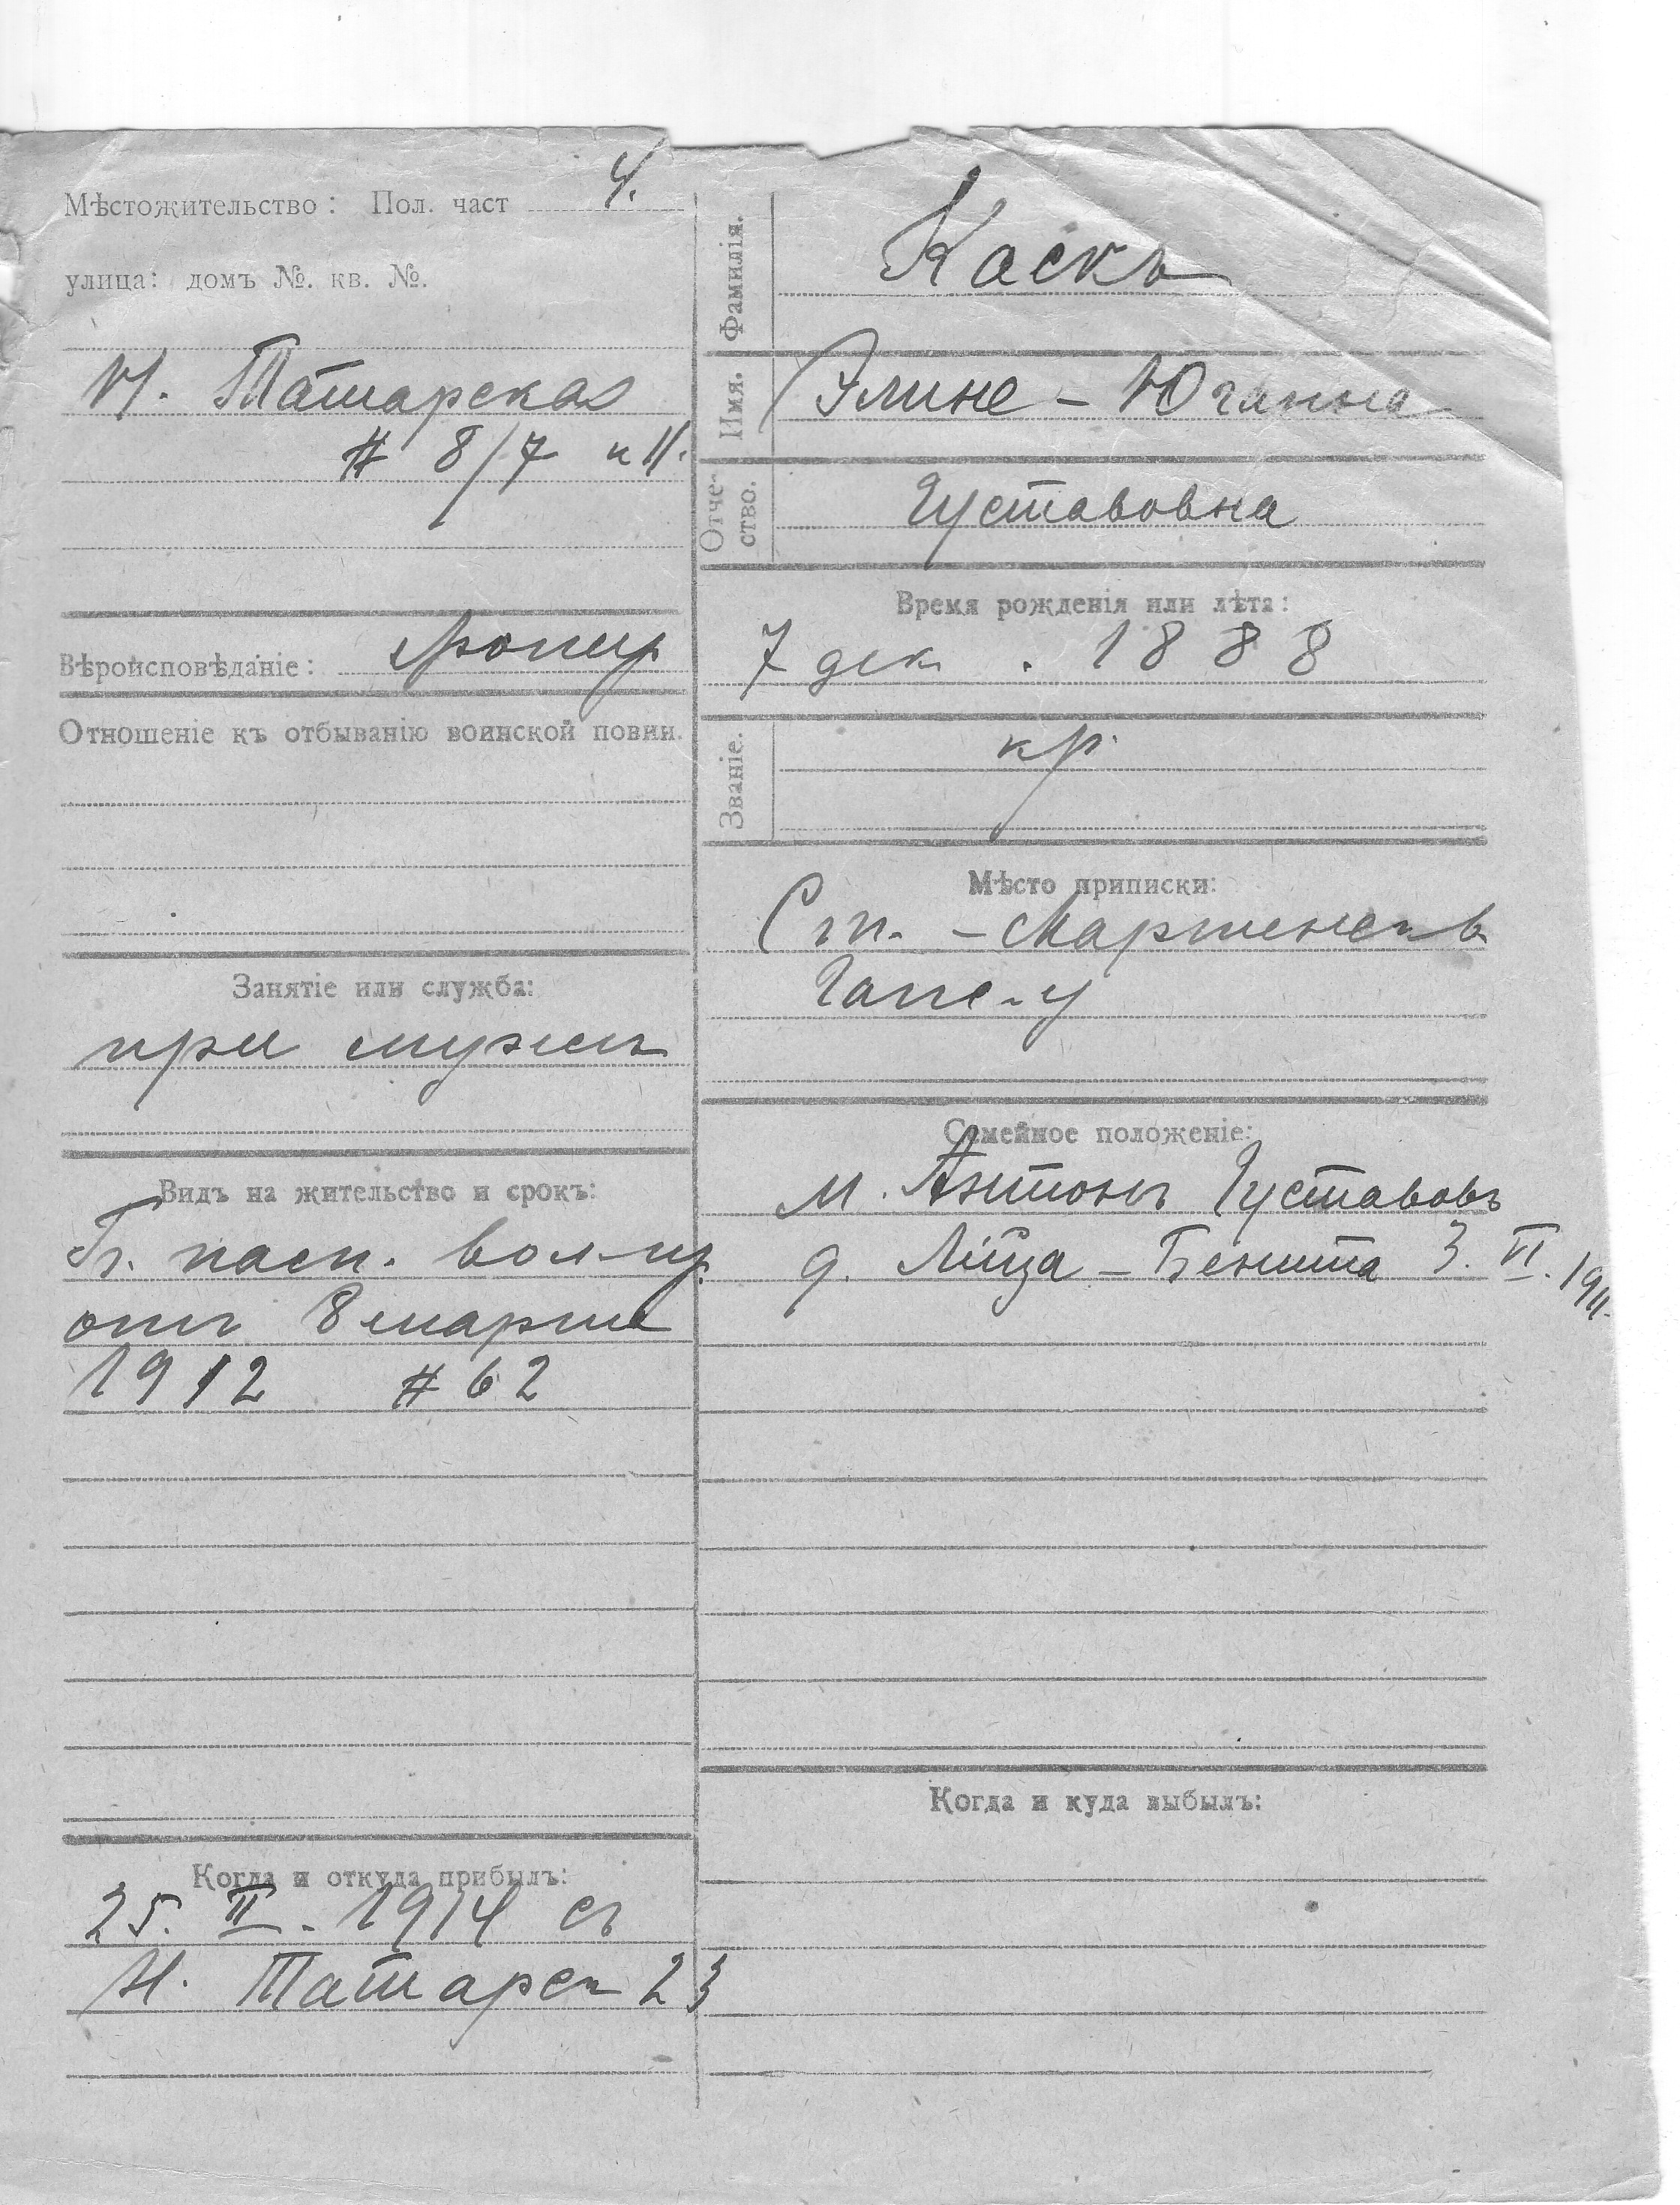 Мѣстожительство: Пол. част 4.
улица: домъ №. кв. №.
Н. Татарская
# 8/7 к 11.
Вѣроисповѣданіе:
Отношеніе къ отбыванію воинской повин.
Занятіе или служба:
при мужѣ
Видъ на жительство и срокъ:
Бз. пасп.
отъ 8 марта
1912 # 62
Когда и откуда прибылъ:
25. II. 1914 съ
Н. Татарск 23
Фамилія. Каскъ
Имя. Элине - Юганна
Отчество. Густавовна
Время рожденія или лѣта:
7 дек. 1888
Званіе. кр.
Мѣсто приписки:
Мартенск в.
Гапс. у
Семейное положеніе:
м. Антонъ Густавовъ
д. Лейза - Бенита 3. VI. 1911.
Когда и куда выбылъ: